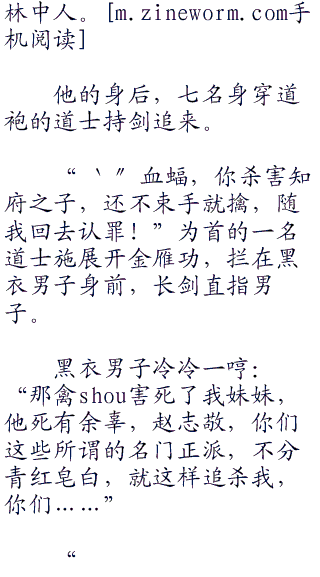 林中人。[m.zineworm.com手
机阅读]
他的身后，七名身穿道
袍的道士持剑追来。
“ ‵〃血蝠，你杀害知
府之子，还不束手就擒，随
我回去认罪！”为首的一名
道士施展开金雁功，拦在黑
衣男子身前，长剑直指男
子。
黑衣男子冷冷一哼：
“那禽shou害死了我妹妹，
他死有余辜，赵志敬，你们
这些所谓的名门正派，不分
青红皂白，就这样追杀我，
你们……”
“